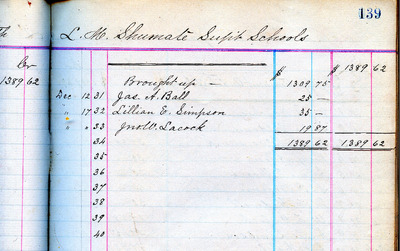 139
L. M. Shumate Sup't Schools
Cr $ 1389 62
1389 62 Brought up — $ 1309 75
Dec 12 31 Jas. A. Ball 25 —
" 17 32 Lillian E. Simpson 35 —
" " 33 Jno W. Lacock 19 87
34 1389 62 1389 62
35
36
37
38
39
40